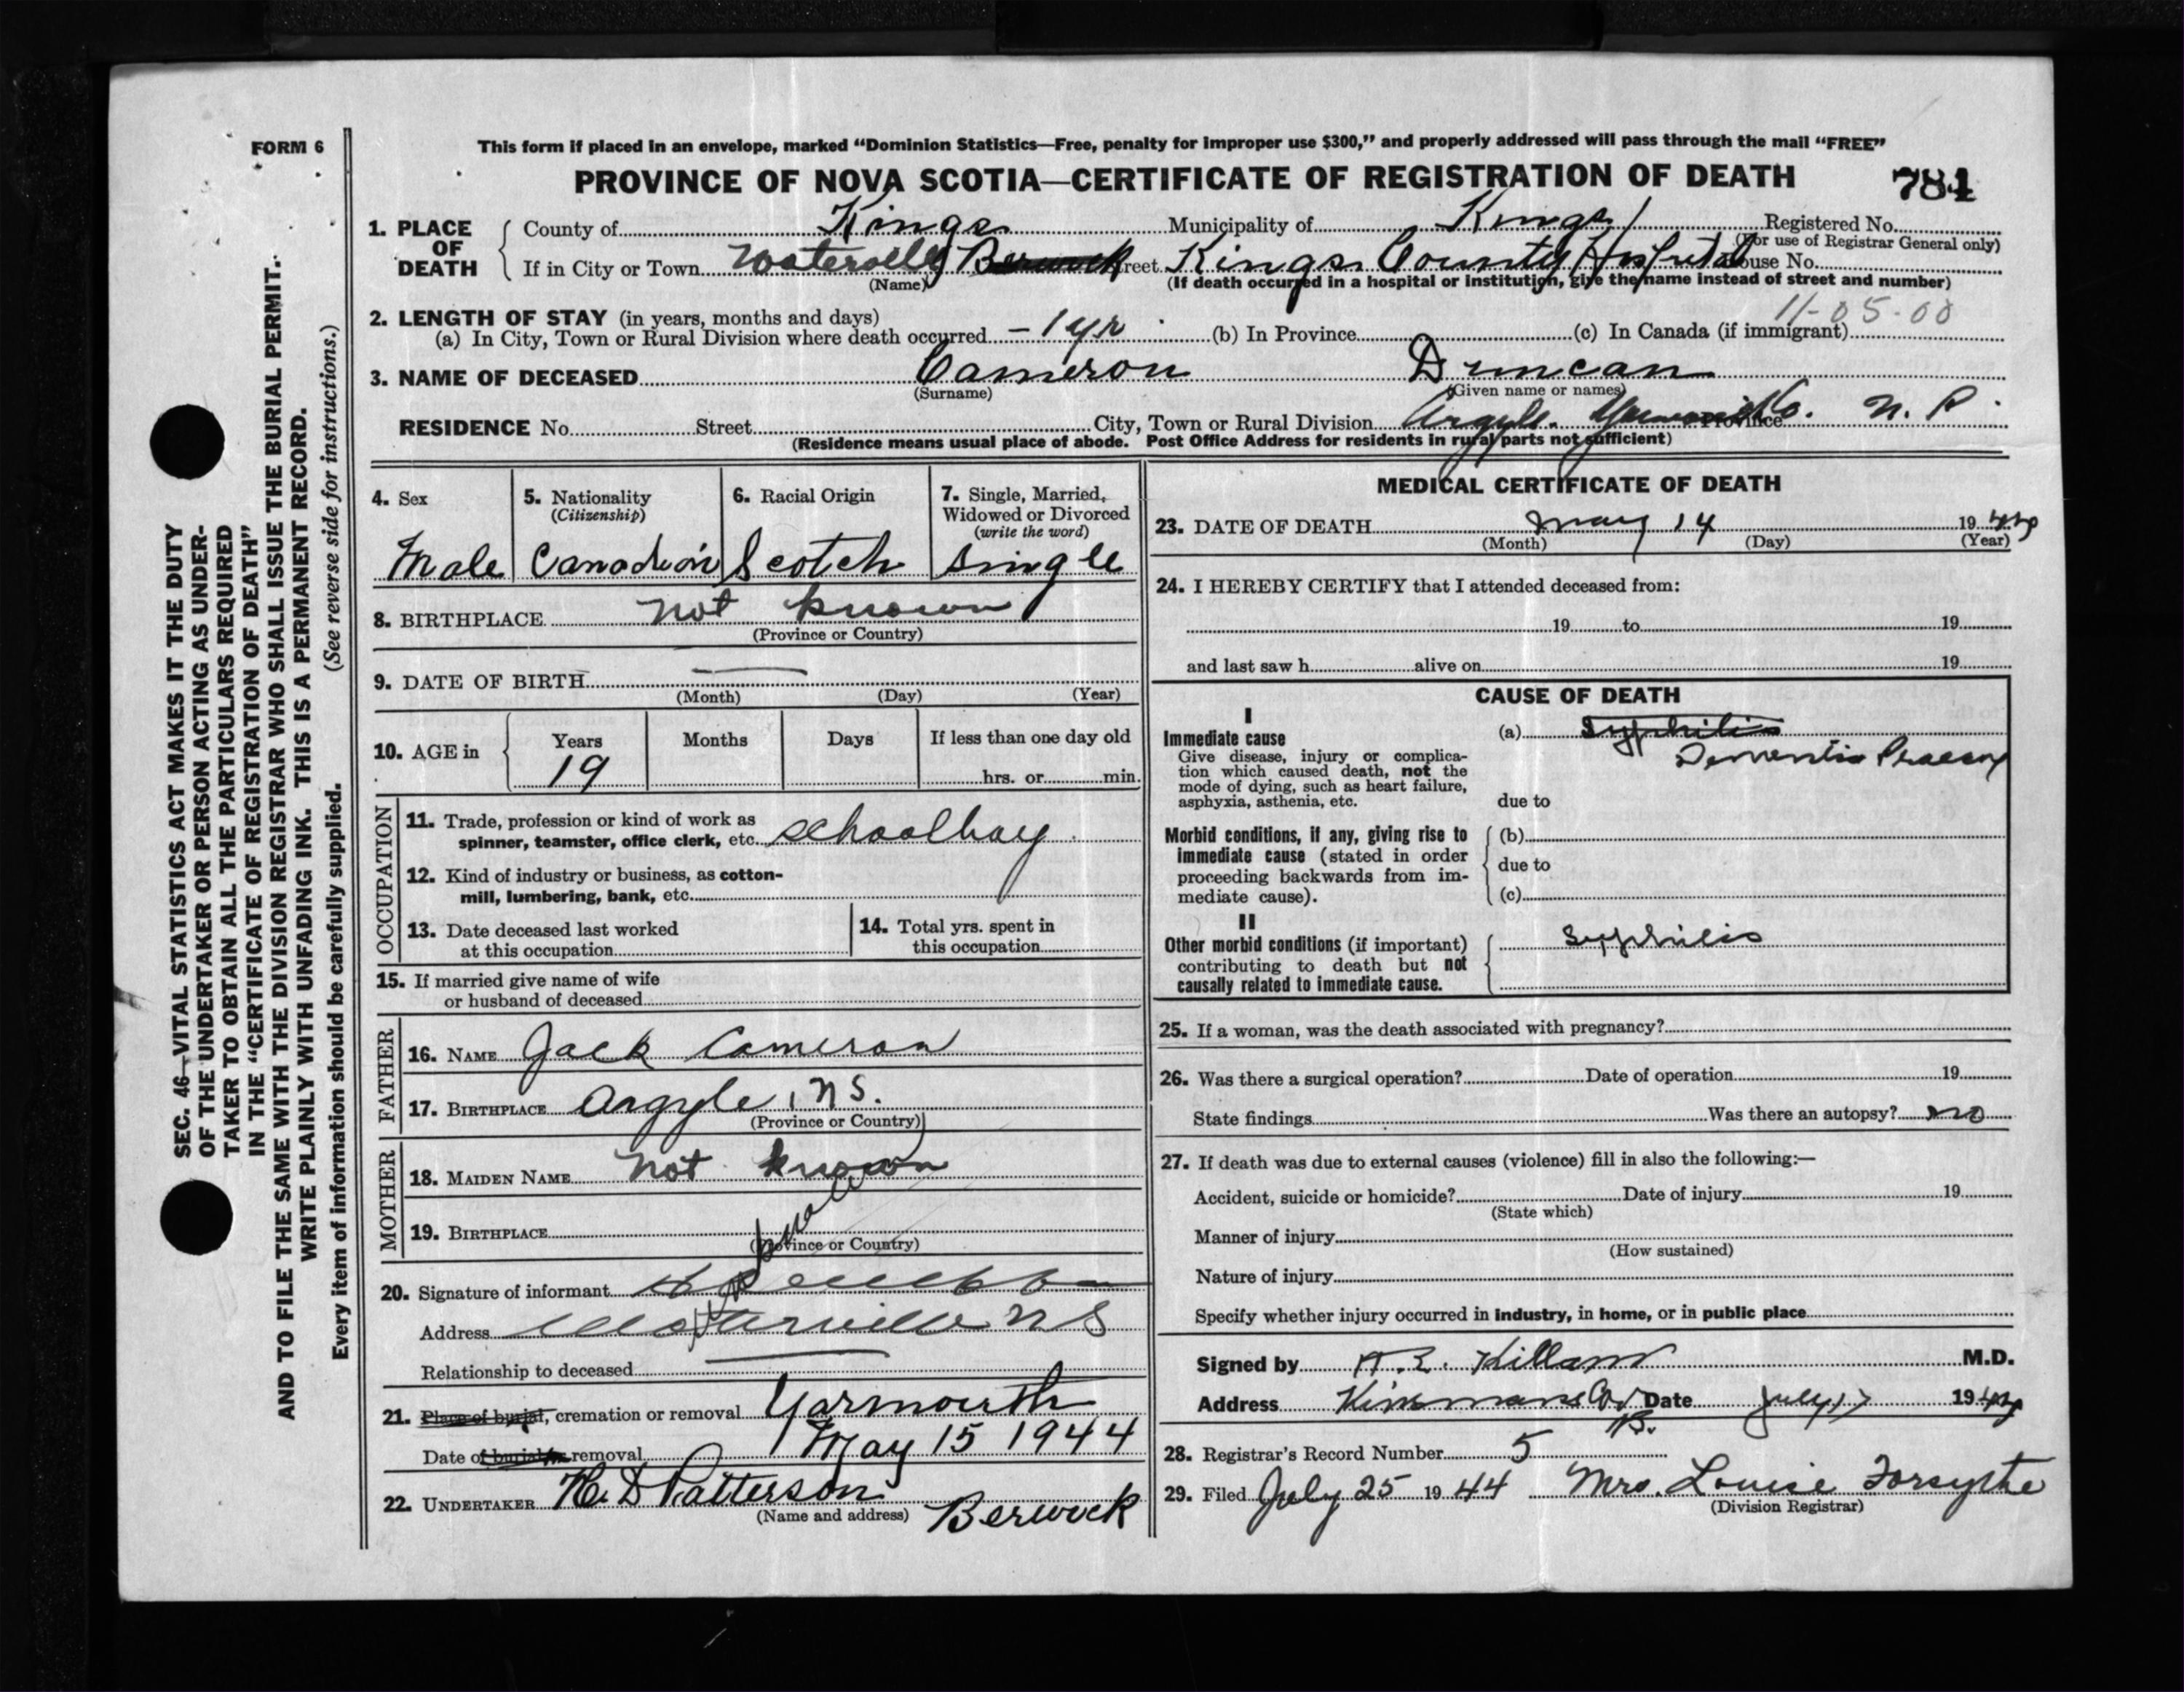 FORM 6
This form if placed in an envelope, marked “Dominion Statistics—Free, penalty for improper use $300,” and properly addressed will pass through the mail “FREE”
PROVINCE OF NOVA SCOTIA—CERTIFICATE OF REGISTRATION OF DEATH
784
1. PLACE OF DEATH
County of Kings Municipality of Kings Registered No.
(For use of Registrar General only)
If in City or Town Waterville Berwick Street Kings County Hospital House No.
(Name) (If death occurred in a hospital or institution, give the name instead of street and number)
11-05-00
2. LENGTH OF STAY (in years, months and days)
(a) In City, Town or Rural Division where death occurred – 1 yr (b) In Province (c) In Canada (if immigrant)
3. NAME OF DECEASED Cameron Duncan
(Surname) (Given name or names)
RESIDENCE No. Street City, Town or Rural Division Argyle. Co. Province
(Residence means usual place of abode. Post Office Address for residents in rural parts not sufficient)
4. Sex
Male
5. Nationality
(Citizenship)
Canadian
6. Racial Origin
Scotch
7. Single, Married,
Widowed or Divorced
(write the word)
Single
8. BIRTHPLACE not known
(Province or Country)
9. DATE OF BIRTH —
(Month) (Day) (Year)
10. AGE in
Years Months Days If less than one day old
19 hrs. or min.
OCCUPATION
11. Trade, profession or kind of work as
spinner, teamster, office clerk, etc. schoolboy
12. Kind of industry or business, as cotton-
mill, lumbering, bank, etc.
13. Date deceased last worked
at this occupation
14. Total yrs. spent in
this occupation
15. If married give name of wife
or husband of deceased
FATHER
16. NAME Jack Cameron
17. BIRTHPLACE Argyle, N.S.
(Province or Country)
MOTHER
18. MAIDEN NAME not known
19. BIRTHPLACE
(Province or Country)
20. Signature of informant
Address Waterville N S
Relationship to deceased —
21. Place of burial, cremation or removal Yarmouth
Date of burial or removal May 15 1944
22. UNDERTAKER H. D Patterson
(Name and address) Berwick
MEDICAL CERTIFICATE OF DEATH
23. DATE OF DEATH May 14 1944
(Month) (Day) (Year)
24. I HEREBY CERTIFY that I attended deceased from:
19 to 19
and last saw h alive on 19
CAUSE OF DEATH
I
Immediate cause
Give disease, injury or complica-
tion which caused death, not the
mode of dying, such as heart failure,
asphyxia, asthenia, etc.
(a) Syphilis
Dementia Praecox
due to
Morbid conditions, if any, giving rise to
immediate cause (stated in order
proceeding backwards from im-
mediate cause).
(b)
due to
(c)
II
Other morbid conditions (if important)
contributing to death but not
causally related to immediate cause.
Syphilis
25. If a woman, was the death associated with pregnancy?
26. Was there a surgical operation? Date of operation 19
State findings Was there an autopsy? no
27. If death was due to external causes (violence) fill in also the following:—
Accident, suicide or homicide? Date of injury 19
(State which)
Manner of injury
(How sustained)
Nature of injury
Specify whether injury occurred in industry, in home, or in public place
Signed by Killam M.D.
Address Kinsmans Cor Date July 17 1944
28. Registrar's Record Number 5
29. Filed July 25 1944 Mrs. Louise Forsythe
(Division Registrar)
SEC. 46—VITAL STATISTICS ACT MAKES IT THE DUTY
OF THE UNDERTAKER OR PERSON ACTING AS UNDER-
TAKER TO OBTAIN ALL THE PARTICULARS REQUIRED
IN THE “CERTIFICATE OF REGISTRATION OF DEATH”
AND TO FILE THE SAME WITH THE DIVISION REGISTRAR WHO SHALL ISSUE THE BURIAL PERMIT.
WRITE PLAINLY WITH UNFADING INK. THIS IS A PERMANENT RECORD.
Every item of information should be carefully supplied. (See reverse side for instructions.)